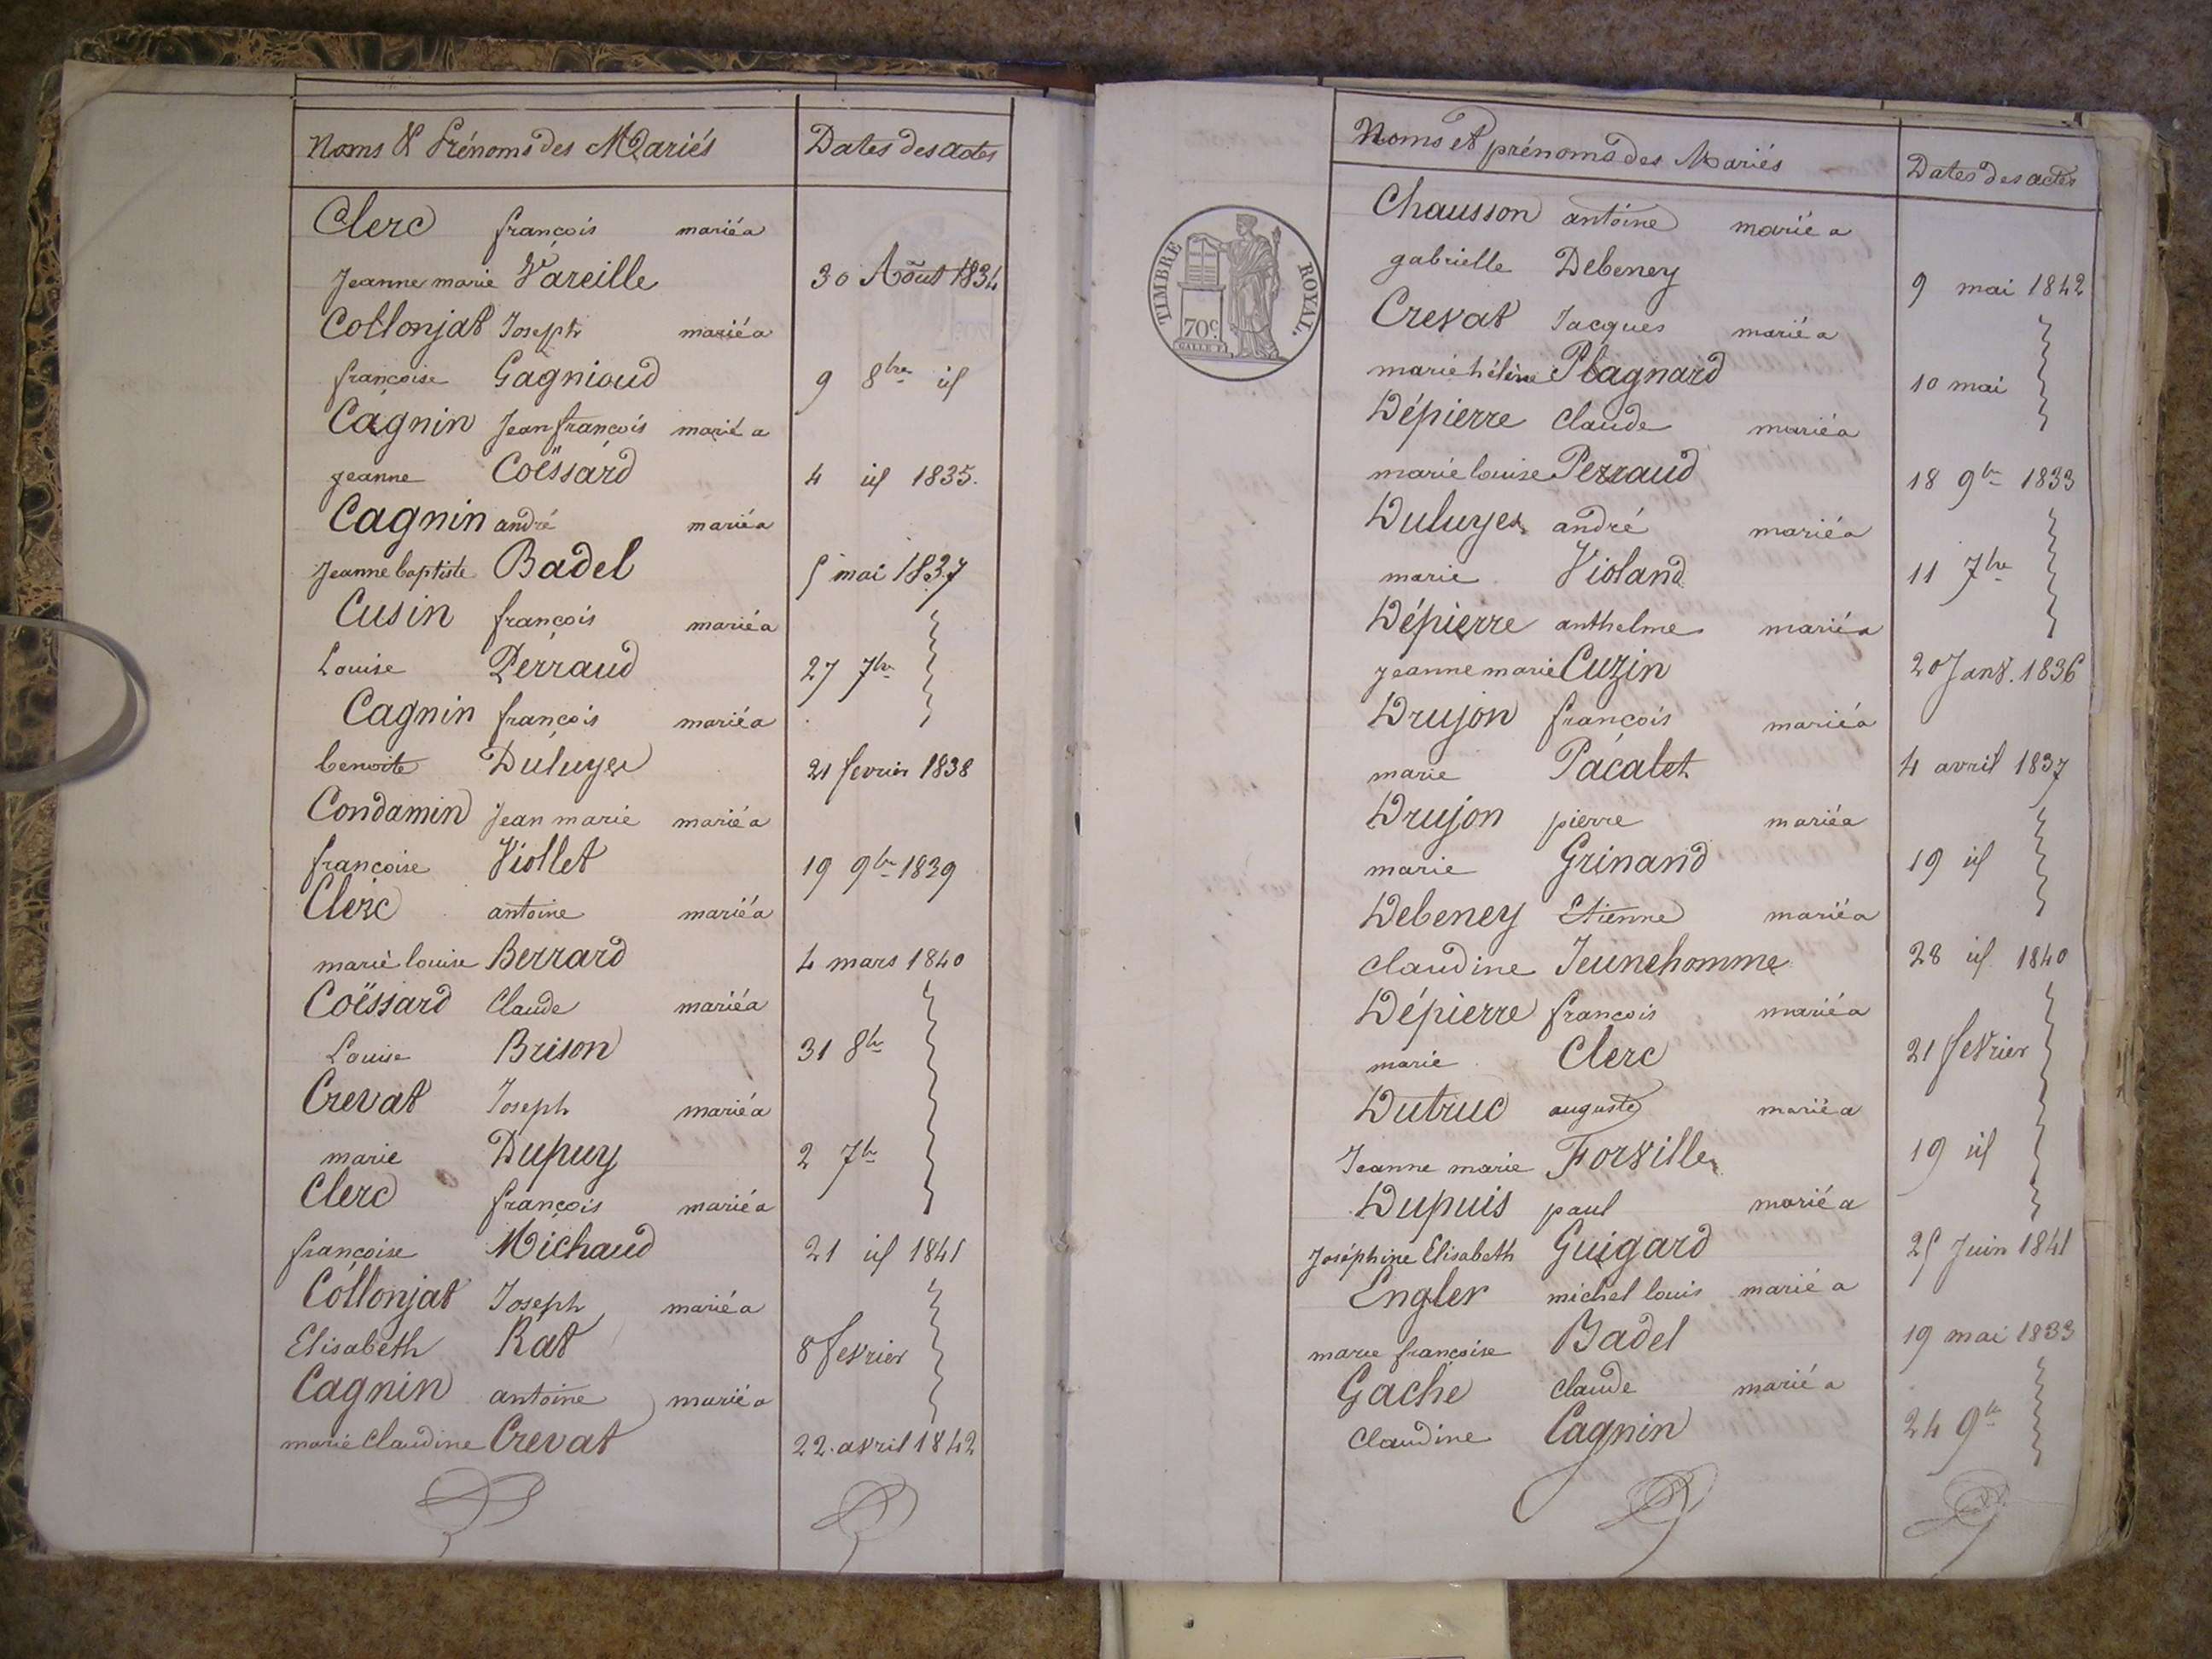 Noms & Prénoms des Mariés Dates des actes
Clerc françois marié a
Jeanne marie Vareille 30 Août 1834
Collonjat Joseph marié a
françoise Gagnioud 9 8bre id
Cagnin Jean françois marié a
jeanne Coëssard 4 id 1835.
Cagnin andré marié a
Jeanne baptiste Badel 5 mai 1837
Cusin françois marié a
Louise Perraud 27 7bre
Cagnin françois marié a
benoite Duluyer 21 fevrier 1838
Condamin Jean marie marié a
françoise Viollet 19 9bre 1839
Clerc antoine marié a
marie louise Berrard 4 mars 1840
Coëssard Claude marié a
Louise Brison 31 8bre
Crevat Joseph marié a
marie Dupuy 2 7bre
Clerc françois marié a
françoise Michaud 21 id 1841
Collonjat Joseph marié a
Elisabeth Rat 8 fevrier
Cagnin antoine marié a
marie Claudine Crevat 22. avril 1842
Noms et prénoms des Mariés Dates des actes
TIMBRE ROYAL.
70c.
Chausson antoine marié a
gabrielle Debeney 9 mai 1842
Crevat Jacques marié a
marie hélène Plagnard 10 mai
Dépierre Claude marié a
marie louise Perraud 18 9bre 1833
Duluyer andré marié a
marie Violand 11 7bre
Dépierre anthelme marié a
jeanne marie Cuzin 20 Janv. 1836
Drujon françois marié a
marie Pacalet 4 avril 1837
Drujon pierre marié a
marie Grinand 19 id
Debeney Etienne marié a
Claudine Jeunehomme 28 id 1840
Dépierre françois marié a
marie Clerc 21 fevrier
Dutruc auguste marié a
Jeanne marie Forviller 19 id
Dupuis paul marié a
Joséphine Elisabeth Guigard 25 Juin 1841
Engler michel louis marié a
marie françoise Badel 19 mai 1833
Gache Claude marié a
Claudine Cagnin 24 9bre